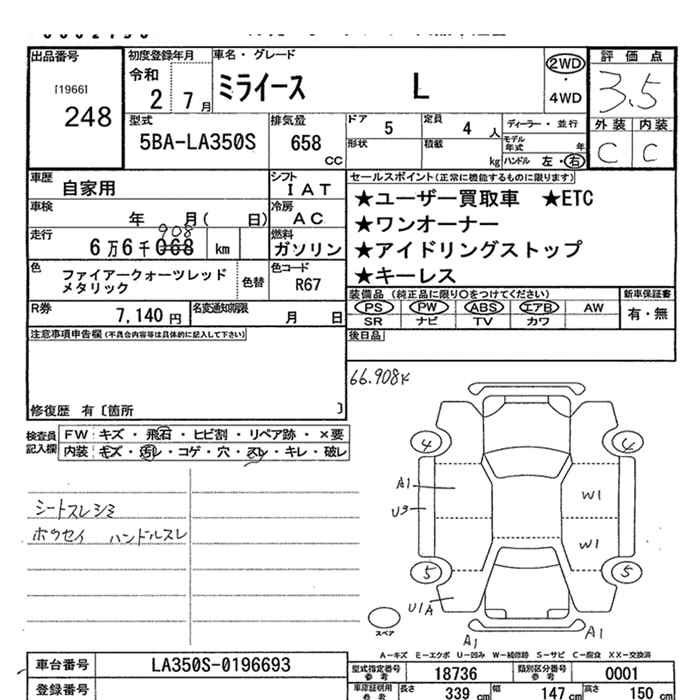 出品番号 初度登録年月 車名・グレード 評価点
[1966]
248
令和
2 7月
ミライース L
2WD
・
4WD
3.5
外装 内装
C C
型式 排気量 ドア 定員 ディーラー・並行
5BA-LA350S 658 CC
5 4 人
形状 積載 kg
モデル年式 年
ハンドル 左・右
車歴 自家用 シフト IAT
セールスポイント(正常に機能するものに限ります)
★ユーザー買取車 ★ETC
★ワンオーナー
★アイドリングストップ
★キーレス
車検 年 月( 日) 冷房 AC
908
走行 6万6千068 km 燃料 ガソリン
色 ファイアークォーツレッドメタリック 色替 色コード R67
装備品(純正品に限り〇をつけてください) 新車保証書
PS PW ABS エアB AW 有・無
SR ナビ TV カワ
R券 7,140円 名変通知期限 月 日
後日品
注意事項申告欄(不具合内容等は具体的に記入して下さい)
66.908K
修復歴 有〔箇所 〕
検査員記入欄
FW キズ・飛石・ヒビ割・リペア跡・×要
内装 キズ・汚レ・コゲ・穴・スレ・キレ・破レ
シートスレシミ
ホウセイ ハンドルスレ
4 4
A1 W1
U3
W1
5 5
U1A
スペア
A1 A1
A-キズ E-エクボ U-凹み W-補修跡 S-サビ C-腐食 XX-交換済
車台番号 LA350S-0196693
型式指定番号 参考 18736 類別区分番号 参考 0001
登録番号
車庫証明用 参考 長さ 339 cm 幅 147 cm 高さ 150 cm